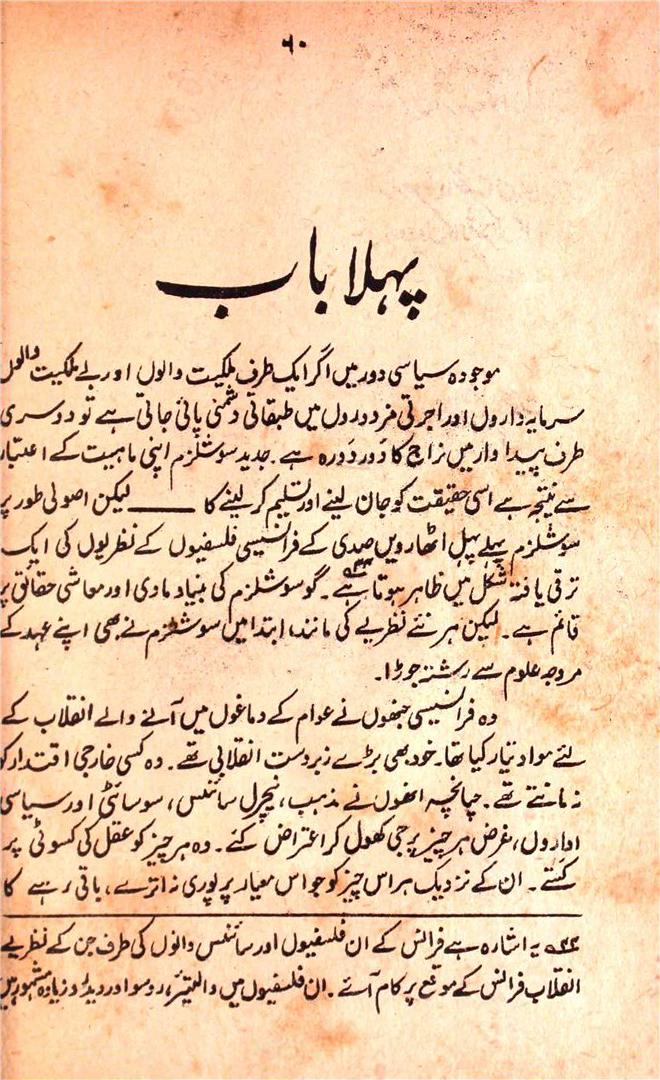 ۶۰
پہلا باب
موجودہ سیاسی دور میں اگر ایک طرف ملکیت والوں اور بے ملکیت والوں
سرمایہ داروں اور اجرتی مزدوروں میں طبقاتی دشمنی پائی جاتی ہے تو دوسری
طرف پیداوار میں نراج کا دَور دَورہ ہے۔ جدید سوشلزم اپنی ماہیت کے اعتبار
سے نتیجہ ہے اسی حقیقت کو جان لینے اور تسلیم کر لینے کا ——— لیکن اصولی طور پر
سوشلزم پہلے پہل اٹھارویں صدی کے فرانسیسی فلسفیوں کے نظریوں کی ایک
ترقی یافتہ شکل میں ظاہر ہوتا ہے۔ گو سوشلزم کی بنیاد مادی اور معاشی حقائق پر
قائم ہے۔ لیکن ہر نئے نظریے کی مانند، ابتدا میں سوشلزم نے بھی اپنے عہد کے
مروجہ علوم سے رشتہ جوڑا۔
وہ فرانسیسی جنھوں نے عوام کے دماغوں میں آنے والے انقلاب کے
لئے مواد تیار کیا تھا۔ خود بھی بڑے زبردست انقلابی تھے۔ وہ کسی خارجی اقتدار کو
نہ مانتے تھے۔ چنانچہ انھوں نے مذہب، نیچرل سائنس، سوسائٹی اور سیاسی
اداروں، غرض ہر چیز پر جی کھول کر اعتراض کئے۔ وہ ہر چیز کو عقل کی کسوٹی پر
کستے۔ ان کے نزدیک ہر اس چیز کو جو اس معیار پر پوری نہ اترے، باقی رہنے کا
یہ اشارہ ہے فرانس کے ان فلسفیوں اور سائنس دانوں کی طرف جن کے نظریے
انقلاب فرانس کے موقع پر کام آئے۔ ان فلسفیوں میں والتیئر، روسو اور دیدرو زیادہ مشہور ہیں